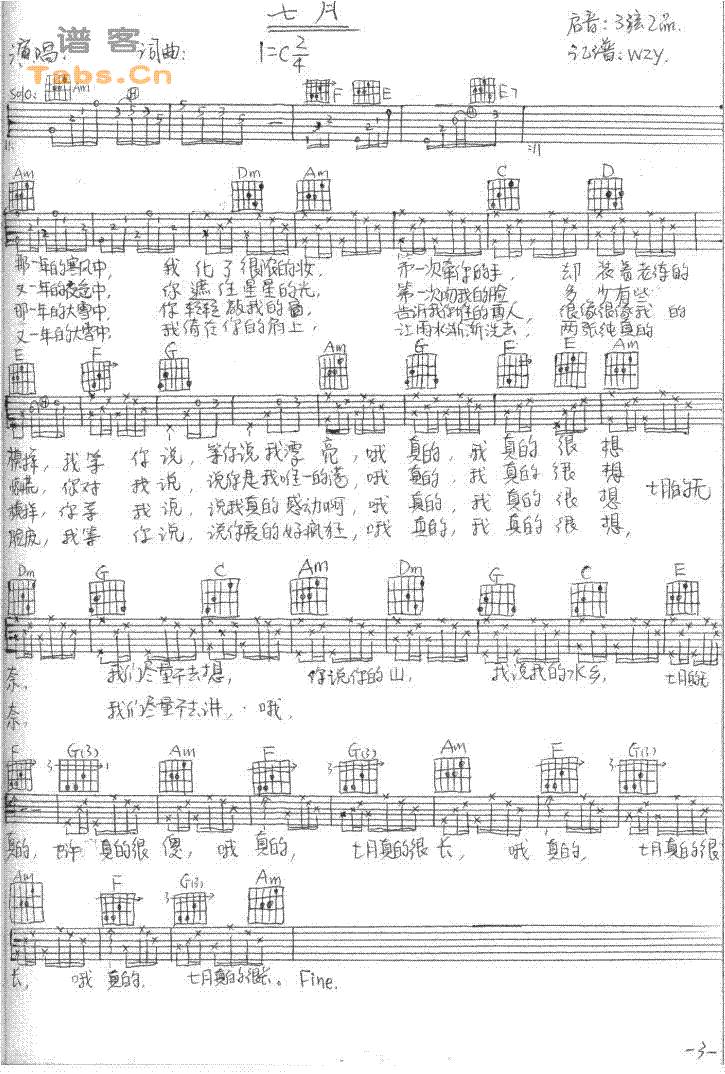 七月
谱客
Tabs.Cn
演唱: 词曲:
1=C 2/4
启音:3弦2品.
记谱:wzy.
Solo: Am F E E7
Am Dm Am C D
那一年的寒风中, 我化了很浓的妆, 第一次牵你的手, 却装着老练的
又一年的夜色中, 你遮住星星的光, 第一次吻我的脸 多少有些
那一年的大雪中, 你轻轻敲我的窗, 告诉我你唯的两人, 很像很像我的
又一年的大雪中, 我倚在你的肩上, 让雨水渐渐洗去, 两张纯真的
E F G Am G F E Am
模样, 我等你说, 等你说我漂亮, 哦真的, 我真的很想
慌, 你对我说, 说你是我唯一的, 哦真的, 我真的很想 七月的无
模样, 你等我说, 说我真的感动啊, 哦真的, 我真的很想
脸庞, 我等你说, 说你爱的好疯狂, 哦真的, 我真的很想,
Dm G C Am Dm G C E
奈, 我们尽量不去想, 你说你的山, 我说我的水乡, 七月的无
奈, 我们尽量不去讲, 哦,
F G(3) Am F G(3) Am F G(3)
真的, 也许真的很傻, 哦真的, 七月真的很长, 哦真的, 七月真的很
Am F G(3) Am
长, 哦真的, 七月真的很长。Fine.
-3-